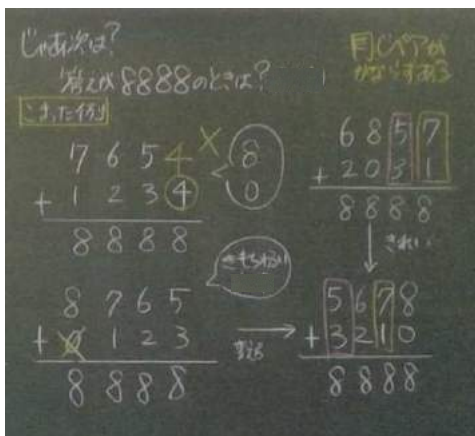 じゃあ次は?
答えが8888のときは?
こまった例
同じペアが
かならずある
7654
+1234
8888
×
8
0
6857
+2031
8888
きれい
きもちわるい
8765
+0123
8888
変える
5678
+3210
8888